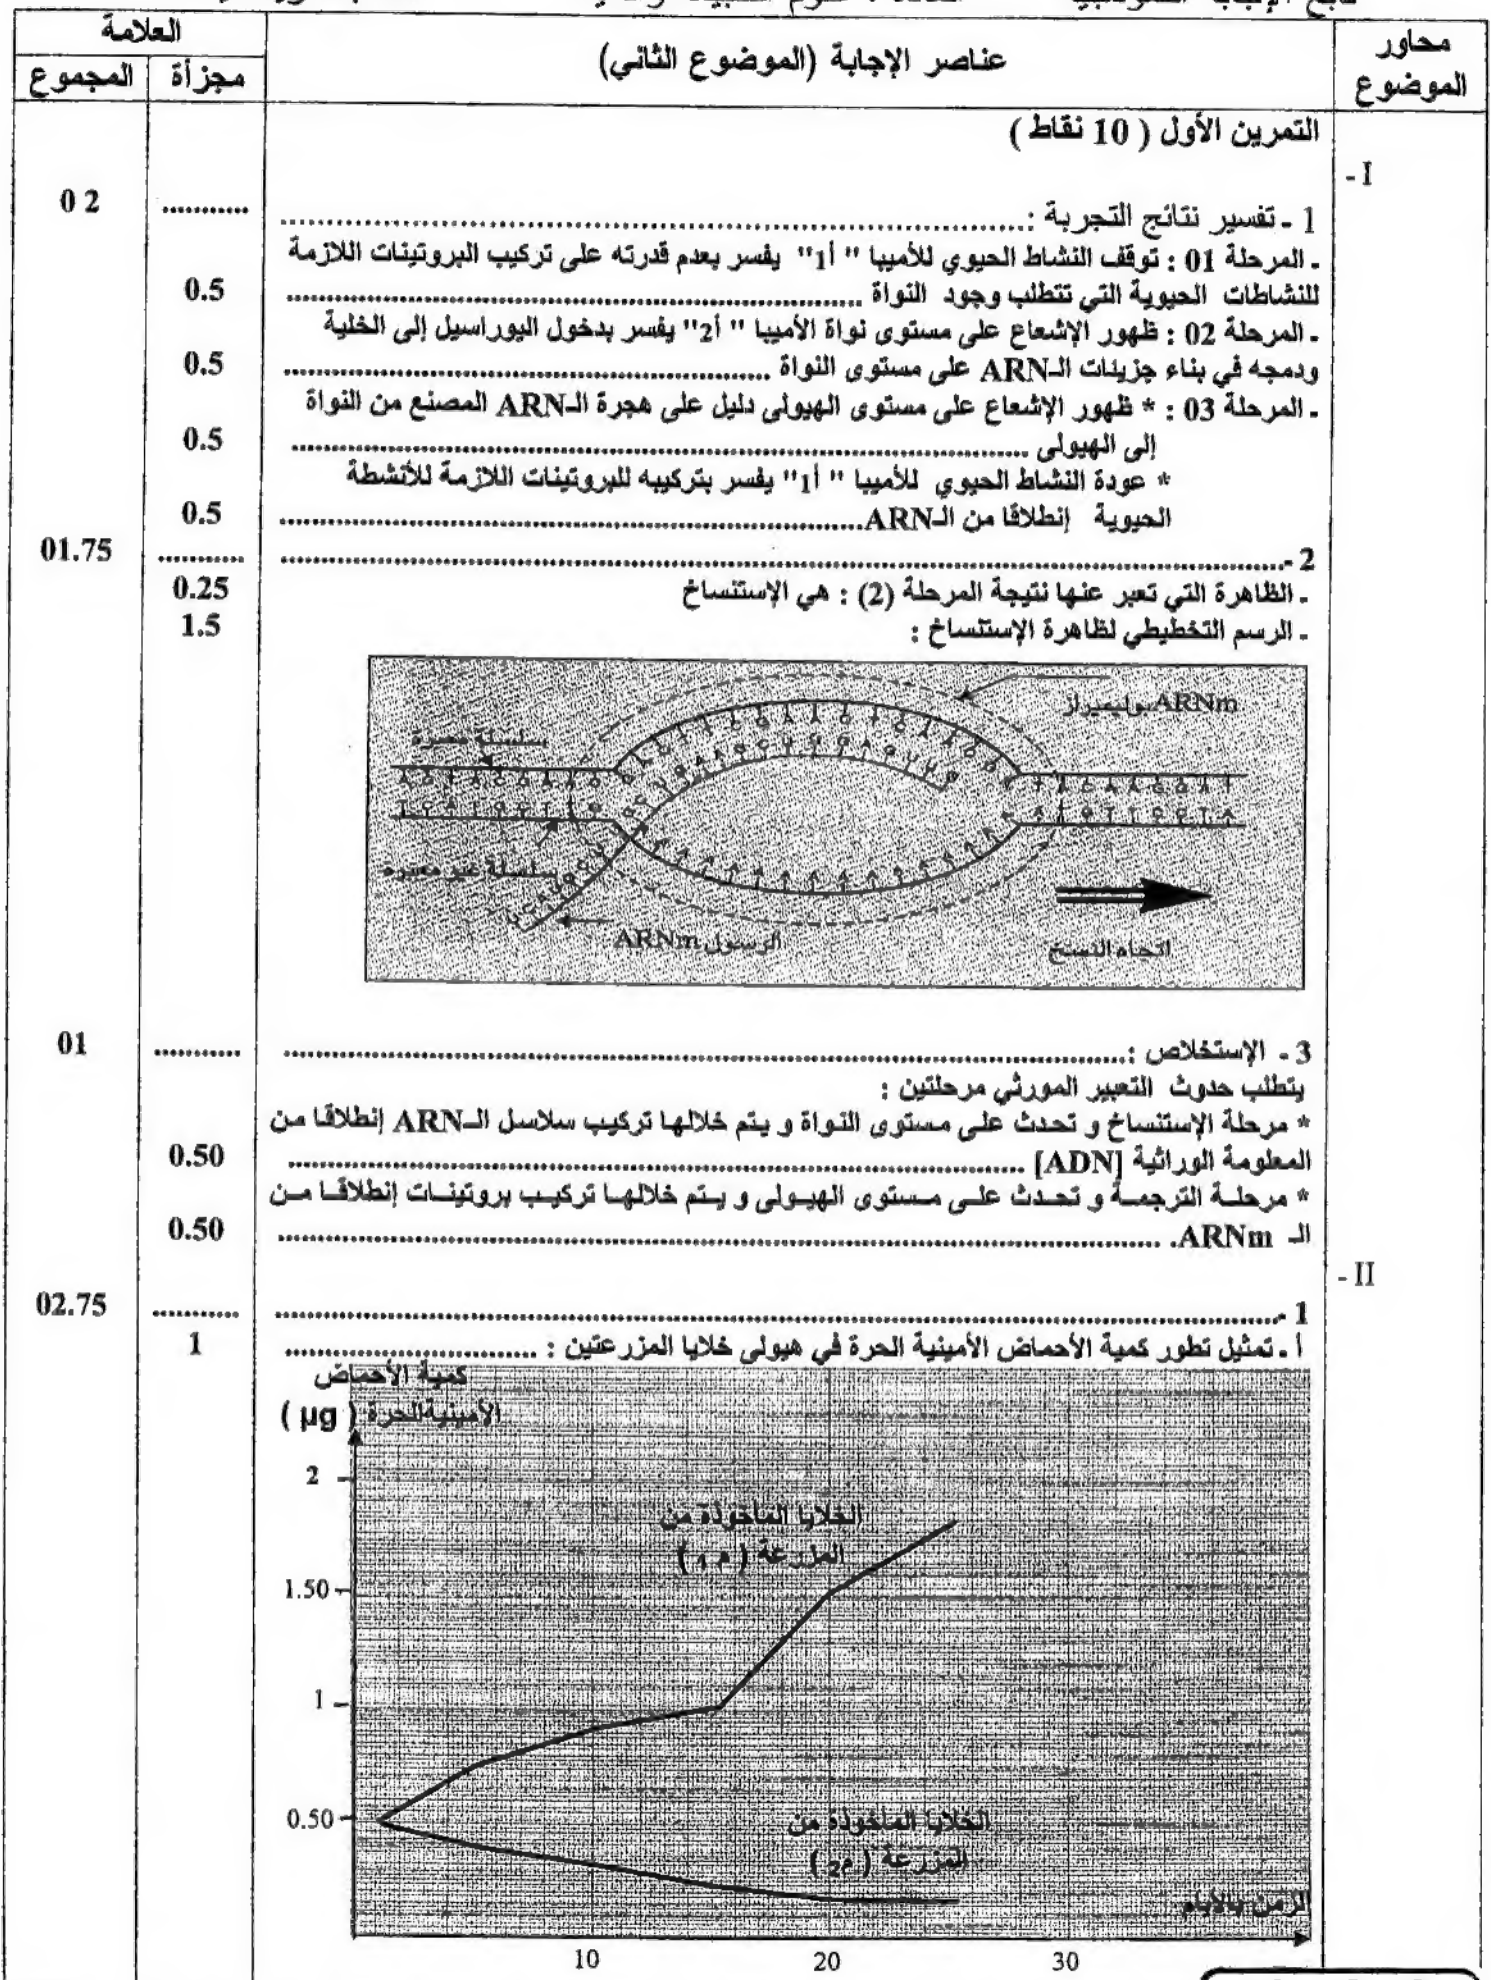 العلامة
محاور الموضوع
عناصر الإجابة (الموضوع الثاني)
مجزأة
المجموع
التمرين الأول ( 10 نقاط )
I -
1 - تفسير نتائج التجربة : ........... 0 2
- المرحلة 01 : توقف النشاط الحيوي للأميبا " أ1" يفسر بعدم قدرته على تركيب البروتينات اللازمة
للنشاطات الحيوية التي تتطلب وجود النواة ........... 0.5
- المرحلة 02 : ظهور الإشعاع على مستوى نواة الأميبا " أ2" يفسر بدخول اليوراسيل إلى الخلية
ودمجه في بناء جزيئات الـARN على مستوى النواة ........... 0.5
- المرحلة 03 : * ظهور الإشعاع على مستوى الهيولى دليل على هجرة الـARN المصنع من النواة
إلى الهيولى ........... 0.5
* عودة النشاط الحيوي للأميبا " أ1" يفسر بتركيبه للبروتينات اللازمة للأنشطة
الحيوية إنطلاقا من الـARN ........... 0.5
2 - ........... 01.75
- الظاهرة التي تعبر عنها نتيجة المرحلة (2) : هي الإستنساخ 0.25
- الرسم التخطيطي لظاهرة الإستنساخ : 1.5
ARNm بوليميراز
سلسلة معبرة
سلسلة غير معبرة
الرسول ARNm
اتجاه النسخ
3 - الإستخلاص : ........... 01
يتطلب حدوث التعبير المورثي مرحلتين :
* مرحلة الإستنساخ و تحدث على مستوى النواة و يتم خلالها تركيب سلاسل الـARN إنطلاقا من
المعلومة الوراثية [ADN] ........... 0.50
* مرحلة الترجمة و تحدث على مستوى الهيولى و يتم خلالها تركيب بروتينات إنطلاقا من
الـ ARNm. ........... 0.50
II -
1 - ........... 02.75
أ - تمثيل تطور كمية الأحماض الأمينية الحرة في هيولى خلايا المزرعتين : ........... 1
كمية الأحماض
الأمينية الحرة ( µg )
2
الخلايا المأخوذة من
المزرعة ( م1 )
1.50
1
0.50
الخلايا المأخوذة من
المزرعة ( م2 )
الزمن بالأيام
10 20 30